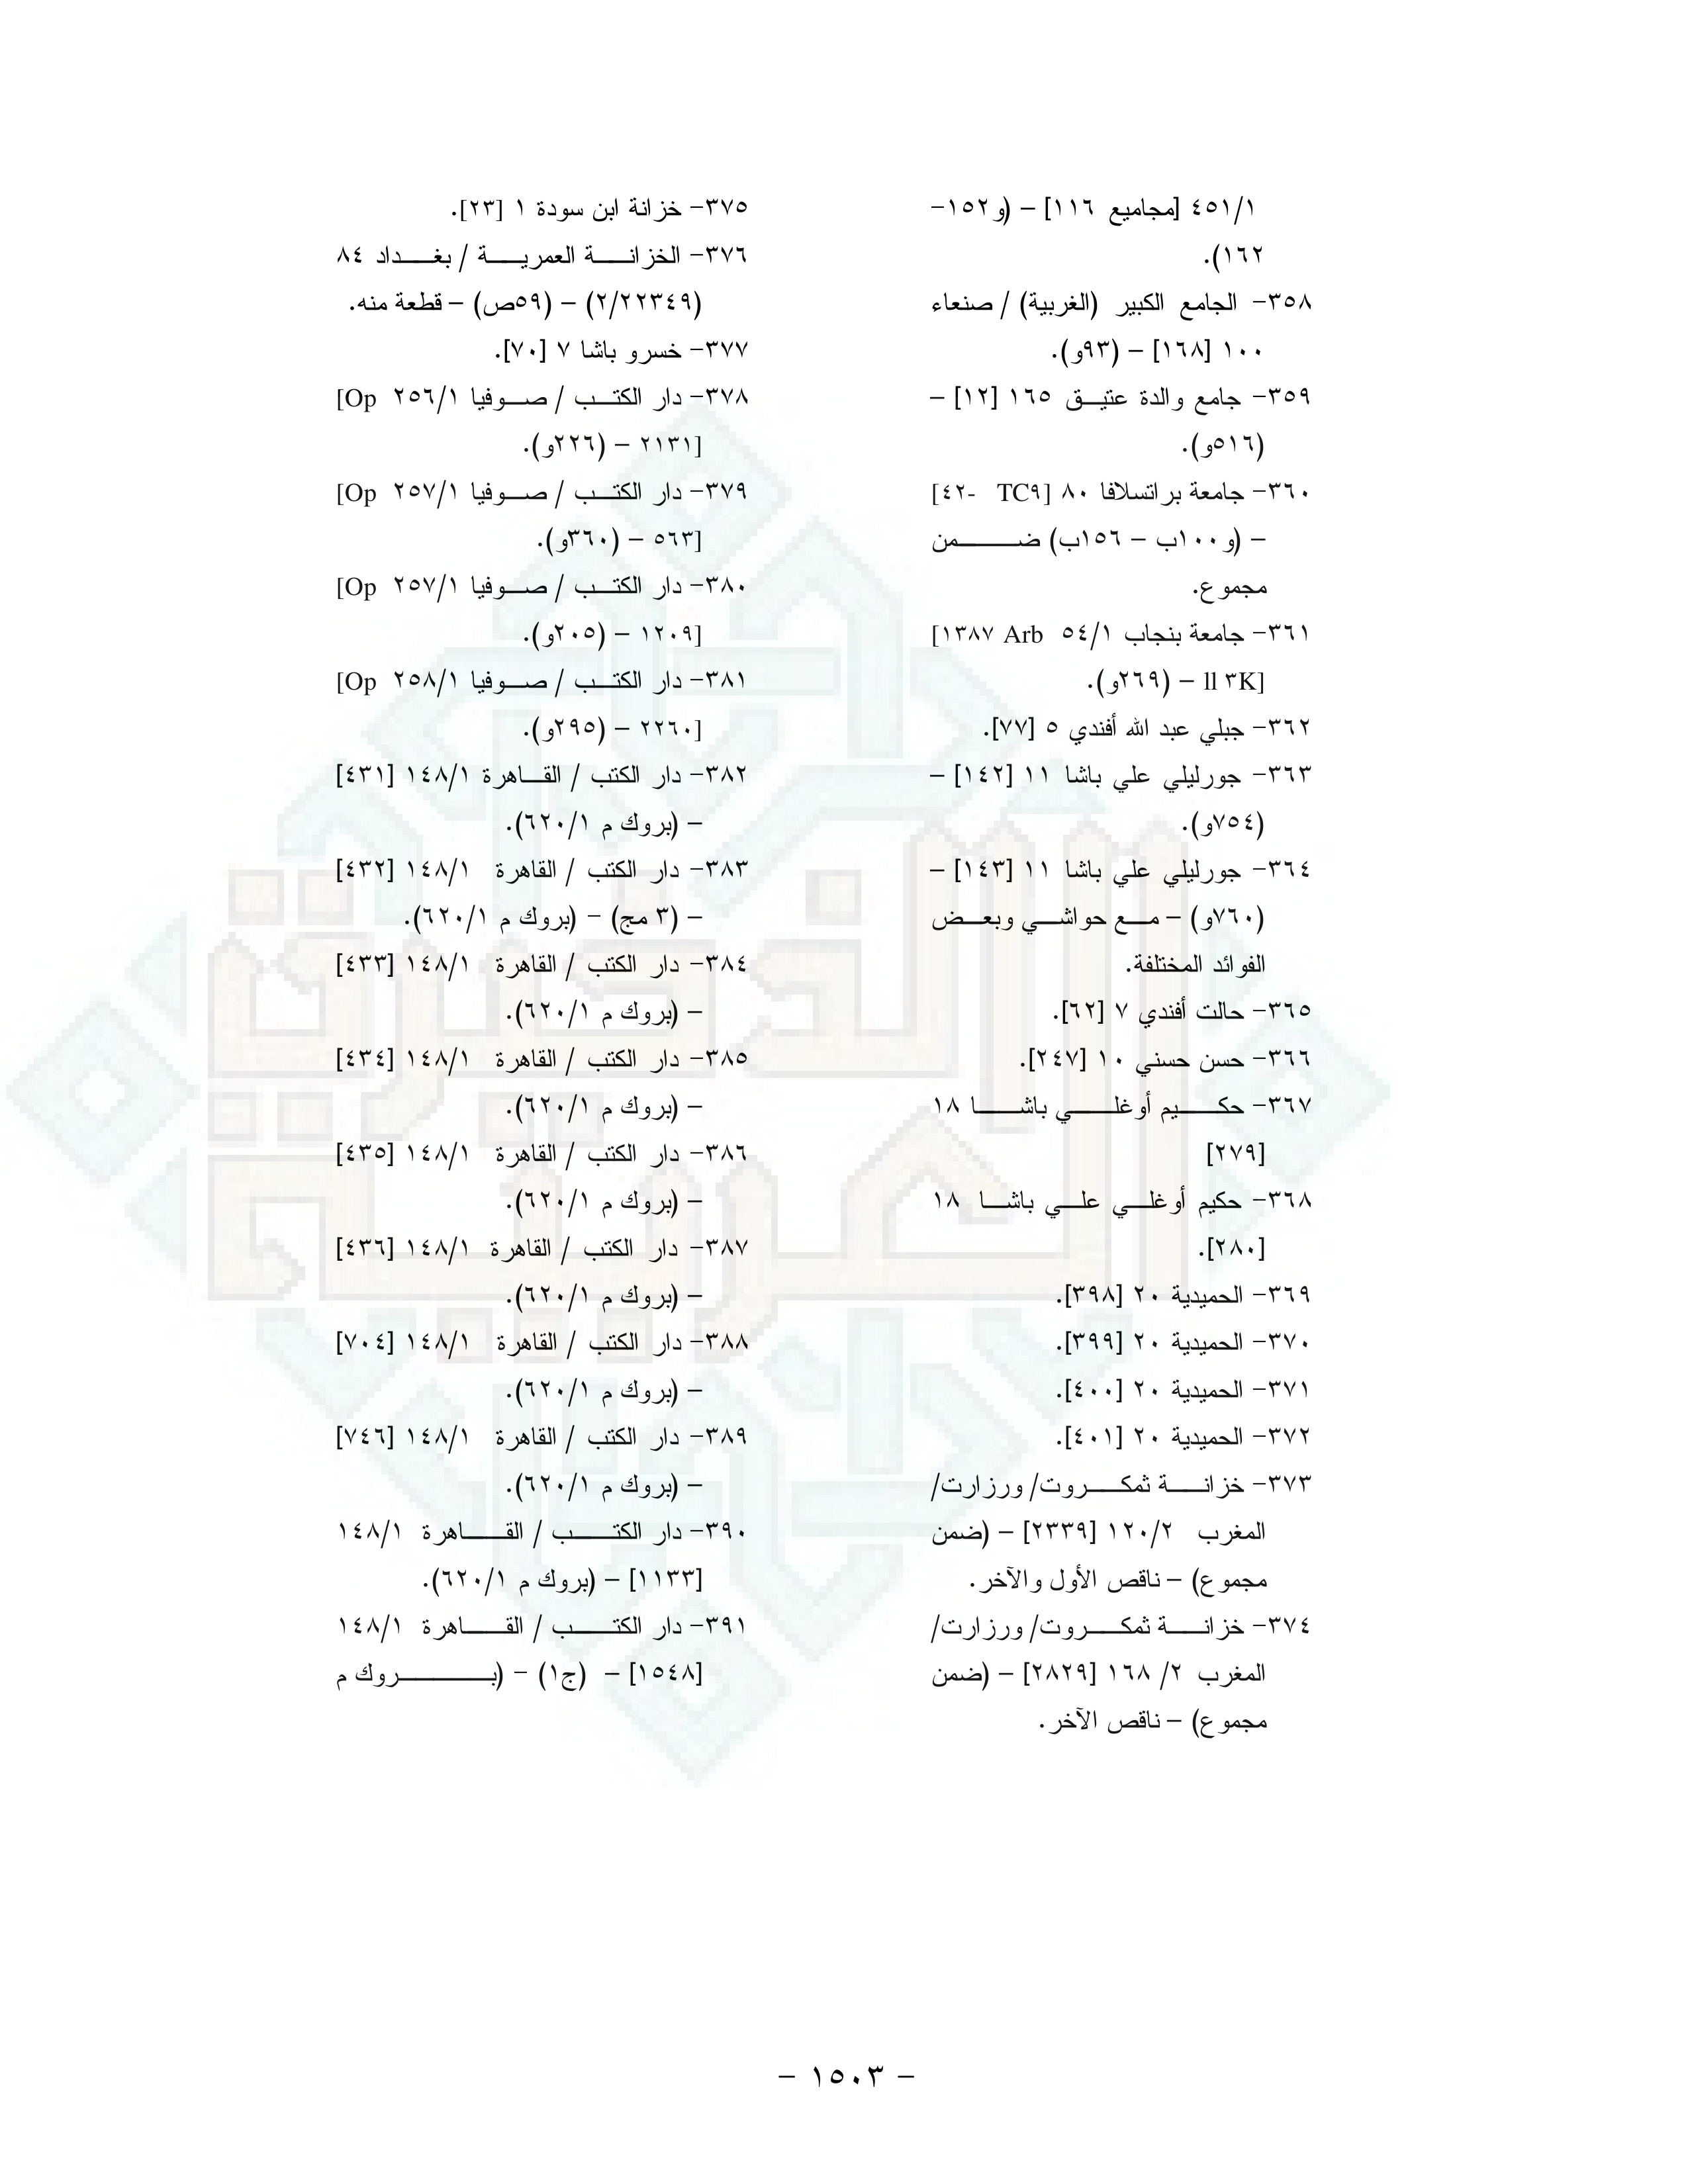 ٤٥١/١ [مجاميع ١١٦] – (و١٥٢-
١٦٢).
٣٥٨- الجامع الكبير (الغربية) / صنعاء
١٠٠ [١٦٨] – (٩٣و).
٣٥٩- جامع والدة عتيق ١٦٥ [١٢] –
(٥١٦و).
٣٦٠- جامعة براتسلافا ٨٠ [TC٩ -٤٢]
– (و١٠٠ب – ١٥٦ب) ضمن
مجموع.
٣٦١- جامعة بنجاب ٥٤/١ [١٣٨٧ Arb
ll ٣K] – (٢٦٩و).
٣٦٢- جبلي عبد الله أفندي ٥ [٧٧].
٣٦٣- جورليلي علي باشا ١١ [١٤٢] –
(٧٥٤و).
٣٦٤- جورليلي علي باشا ١١ [١٤٣] –
(٧٦٠و) – مع حواشي وبعض
الفوائد المختلفة.
٣٦٥- حالت أفندي ٧ [٦٢].
٣٦٦- حسن حسني ١٠ [٢٤٧].
٣٦٧- حكيم أوغلي باشا ١٨
[٢٧٩]
٣٦٨- حكيم أوغلي علي باشا ١٨
[٢٨٠].
٣٦٩- الحميدية ٢٠ [٣٩٨].
٣٧٠- الحميدية ٢٠ [٣٩٩].
٣٧١- الحميدية ٢٠ [٤٠٠].
٣٧٢- الحميدية ٢٠ [٤٠١].
٣٧٣- خزانة ثمكروت/ ورزارت/
المغرب ١٢٠/٢ [٢٣٣٩] – (ضمن
مجموع) – ناقص الأول والآخر.
٣٧٤- خزانة ثمكروت/ ورزارت/
المغرب ٢/ ١٦٨ [٢٨٢٩] – (ضمن
مجموع) – ناقص الآخر.
٣٧٥- خزانة ابن سودة ١ [٢٣].
٣٧٦- الخزانة العمرية / بغداد ٨٤
(٢/٢٢٣٤٩) – (٥٩ص) – قطعة منه.
٣٧٧- خسرو باشا ٧ [٧٠].
٣٧٨- دار الكتب / صوفيا ٢٥٦/١ [Op
٢١٣١] – (٢٢٦و).
٣٧٩- دار الكتب / صوفيا ٢٥٧/١ [Op
٥٦٣] – (٣٦٠و).
٣٨٠- دار الكتب / صوفيا ٢٥٧/١ [Op
١٢٠٩] – (٢٠٥و).
٣٨١- دار الكتب / صوفيا ٢٥٨/١ [Op
٢٢٦٠] – (٢٩٥و).
٣٨٢- دار الكتب / القاهرة ١٤٨/١ [٤٣١]
– (بروك م ٦٢٠/١).
٣٨٣- دار الكتب / القاهرة ١٤٨/١ [٤٣٢]
– (٣ مج) – (بروك م ٦٢٠/١).
٣٨٤- دار الكتب / القاهرة ١٤٨/١ [٤٣٣]
– (بروك م ٦٢٠/١).
٣٨٥- دار الكتب / القاهرة ١٤٨/١ [٤٣٤]
– (بروك م ٦٢٠/١).
٣٨٦- دار الكتب / القاهرة ١٤٨/١ [٤٣٥]
– (بروك م ٦٢٠/١).
٣٨٧- دار الكتب / القاهرة ١٤٨/١ [٤٣٦]
– (بروك م ٦٢٠/١).
٣٨٨- دار الكتب / القاهرة ١٤٨/١ [٧٠٤]
– (بروك م ٦٢٠/١).
٣٨٩- دار الكتب / القاهرة ١٤٨/١ [٧٤٦]
– (بروك م ٦٢٠/١).
٣٩٠- دار الكتب / القاهرة ١٤٨/١
[١١٣٣] – (بروك م ٦٢٠/١).
٣٩١- دار الكتب / القاهرة ١٤٨/١
[١٥٤٨] – (ج١) – (بروك م
الذخيرة
العربية
- ١٥٠٣ -